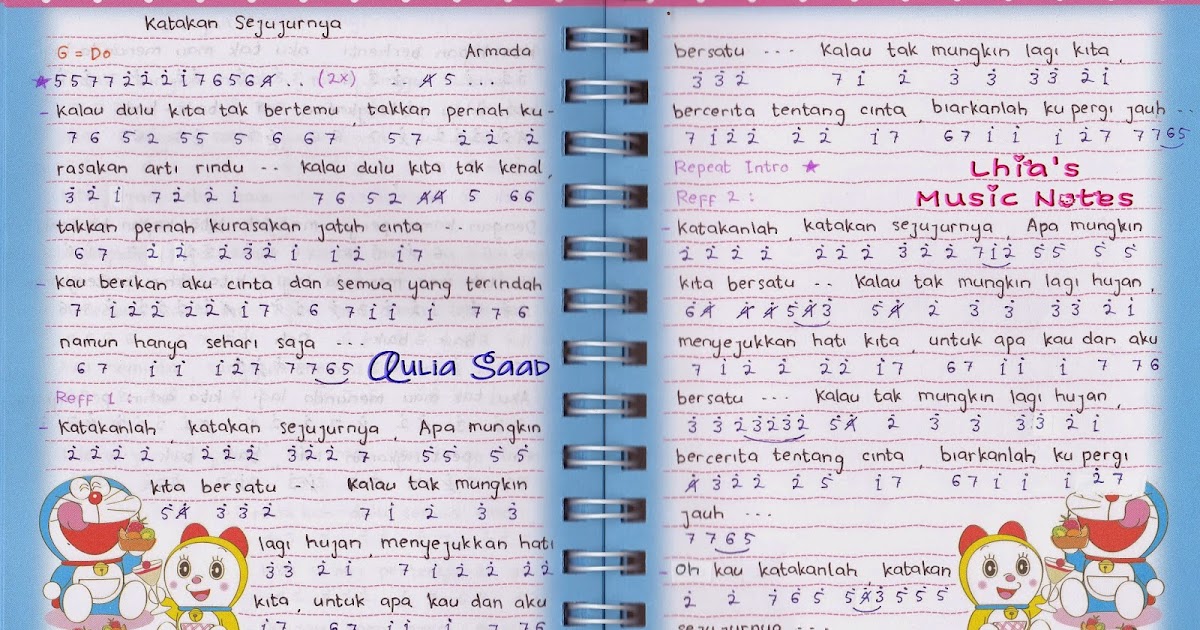 Katakan Sejujurnya
G = Do Armada
★ 5 5 7 7 2̇ 2̇ 2̇ 1̇ 7 6 5 6 4̸ . . (2x) 1̇ 4̸ 5 ...
- Kalau dulu kita tak bertemu, takkan pernah ku-
7 6 5 2 5 5 5 6 6 7 5 7 2̇ 2̇ 2̇
rasakan arti rindu -- Kalau dulu kita tak kenal,
3̇ 2̇ 1̇ 7 2̇ 2̇ 1̇ 7 6 5 2 4̸ 4̸ 5 6 6
takkan pernah kurasakan jatuh cinta --
6 7 2̇ 2̇ 2̇ 3̇ 2̇ 1̇ 1̇ 2̇ 1̇ 7
- Kau berikan aku cinta dan semua yang terindah
7 1̇ 2̇ 2̇ 2̇ 2̇ 1̇ 7 6 7 1̇ 1̇ 1̇ 7 7 6
namun hanya sehari saja ---
6 7 1̇ 1̇ 1̇ 2̇ 7 7 7 6 5 Aulia Saad
Reff 1 :
- Katakanlah, katakan sejujurnya, Apa mungkin
2̇ 2̇ 2̇ 2̇ 2̇ 2̇ 2̇ 3̇ 2̇ 2̇ 7 5̇ 5̇ 5̇ 5̇
kita bersatu --- Kalau tak mungkin
5̇ 4̸̇ 3̇ 3̇ 2̇ 7 1̇ 2̇ 3̇ 3̇
lagi hujan, menyejukkan hati
3̇ 3̇ 2̇ 1̇ 7 1̇ 2̇ 2̇ 2̇ 2̇
kita, untuk apa kau dan aku
1̇ 7 6 7 1̇ 1̇ 1̇ 7 7 6
bersatu --- Kalau tak mungkin lagi kita,
3̇ 3̇ 2̇ 7 1̇ 2̇ 3̇ 3̇ 3̇ 3̇ 2̇ 1̇
bercerita tentang cinta, biarkanlah ku pergi jauh --
7 1̇ 2̇ 2̇ 2̇ 2̇ 1̇ 7 6 7 1̇ 1̇ 1̇ 2̇ 7 7 7 6 5
Repeat Intro ★ Lhia's
Reff 2 : Music Notes
- Katakanlah, katakan sejujurnya Apa mungkin
2̇ 2̇ 2̇ 2̇ 2̇ 2̇ 2̇ 3̇ 2̇ 2̇ 7 1̇ 2̇ 5̇ 5̇ 5̇ 5̇
kita bersatu -- Kalau tak mungkin lagi hujan,
6̇ 4̸̇ 4̸̇ 4̸̇ 5̇ 4̸̇ 3̇ 5̇ 4̸̇ 2̇ 3̇ 3̇ 3̇ 3̇ 2̇ 1̇
menyejukkan hati kita, untuk apa kau dan aku
7 1̇ 2̇ 2̇ 2̇ 2̇ 1̇ 7 6 7 1̇ 1̇ 1̇ 7 7 6
bersatu --- Kalau tak mungkin lagi hujan,
3̇ 3̇ 2̇ 3̇ 2̇ 3̇ 2̇ 5̇ 4̸̇ 2̇ 3̇ 3̇ 3̇ 3̇ 2̇ 1̇
bercerita tentang cinta, biarkanlah ku pergi
4̸̇ 3̇ 2̇ 2̇ 2̇ 5̇ 1̇ 7 6 7 1̇ 1̇ 1̇ 2̇ 7
jauh ---
7 7 6 5
- Oh kau katakanlah, katakan
2̇ 2̇ 7̇ 6̇ 5̇ 5̇ 4̸̇ 3̇ 5̇ 5̇ 5̇
sejujurnya ---